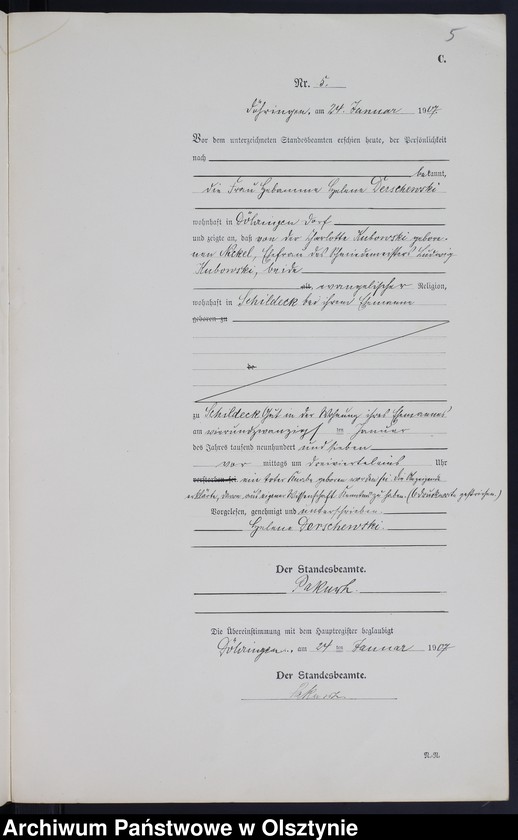 5
C.
Nr. 5.
Döhringen, am 24. Januar 1907.
Vor dem unterzeichneten Standesbeamten erschien heute, der Persönlichkeit
nach
bekannt,
die Frau Hebamme Helene Derschewski
wohnhaft in Döhringen Dorf
und zeigte an, daß von der Charlotte Kubowski gebore-
nen Nickel, Ehefrau des Schmiedemeisters Ludwig
Kubowski, beide
alt, evangelischer Religion,
wohnhaft in Schildeck bei ihrem Ehemanne
geboren zu
zu Schildeck Gut in der Wohnung ihres Ehemannes
am vierundzwanzigsten Januar
des Jahres tausend neunhundert und sieben
vor mittags um dreiviertel eins Uhr
verstorben sei. ein toter Knabe geboren worden sei. Die Anzeigende
erklärte, davon aus eigener Wissenschaft Kenntnis zu haben. (6 Druckworte gestrichen.)
Vorgelesen, genehmigt und unterschrieben.
Helene Derschewski.
Der Standesbeamte.
Die Übereinstimmung mit dem Hauptregister beglaubigt
Döhringen, am 24 ten Januar 1907
Der Standesbeamte.
Archiwum Państwowe w Olsztynie